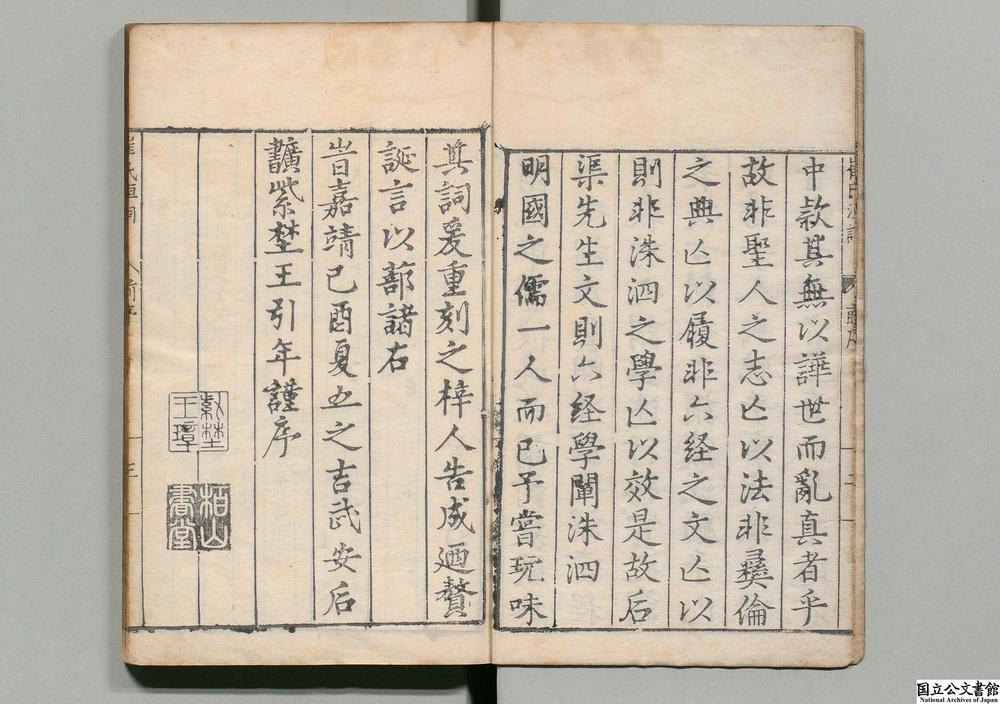 中欵其無以譁世而亂真者乎
故非聖人之志亾以法非彞倫
之典亾以履非六経之文亾以
則非洙泗之學亾以效是故后
渠先生文則六経學闡洙泗
明國之儒一人而已予嘗玩味
其詞爰重刻之梓人告成廼贅
誕言以蔀諸右
旹嘉靖己酉夏五之吉武安后
學紫埜王引年謹序
紫埜
王璋
栢山
書堂
国立公文書館
National Archives of Japan